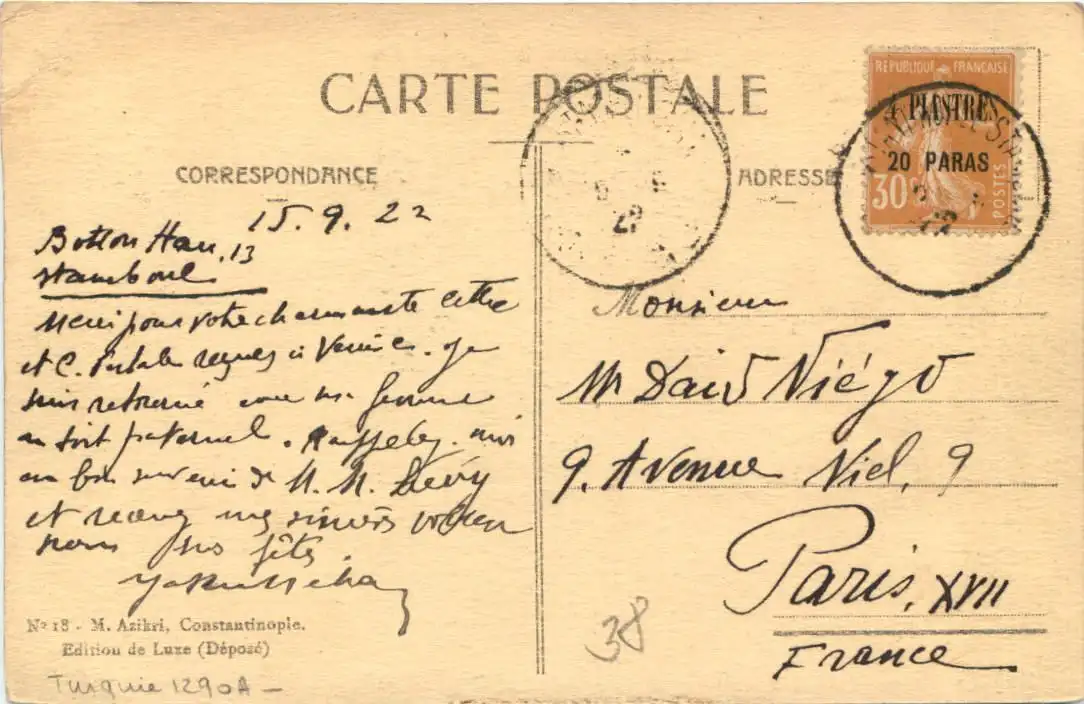 CARTE POSTALE
CORRESPONDANCE
15. 9. 22
Botton Han, 13
Stamboul
Merci pour votre charmante lettre
et C. Postale reçues à Venise. Je
suis retourné avec ma femme
au toit paternel. Rappelez-moi
au bon souvenir de M. M. Lévy
et recevez mes sincères vœux
pour les fêtes
Nº 18 - M. Azikri, Constantinople.
Edition de Luxe (Déposé)
Turquie 1290A -
ADRESSE
REPUBLIQUE FRANÇAISE
4 PIASTRES
20 PARAS
30c
POSTES
22
22
Monsieur
Mr David Niégo
9. Avenue Niel, 9
Paris, XVII
France
38